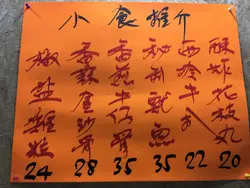 小食推介
椒盐雞
24
香蒜骨
28
香菇牛仔骨
35
秘制魷魚
35
西冷牛扒
22
酥炸花枝丸
20